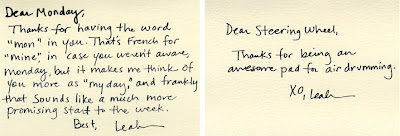 Dear Monday,
Thanks for having the word
"mon" in you. That's French for
"mine," in case you weren't aware,
monday, but it makes me think of
you more as "my day," and frankly
that sounds like a much more
promising start to the week.
Best, Leah
Dear Steering Wheel,
Thanks for being an
awesome pad for air drumming.
XO, Leah